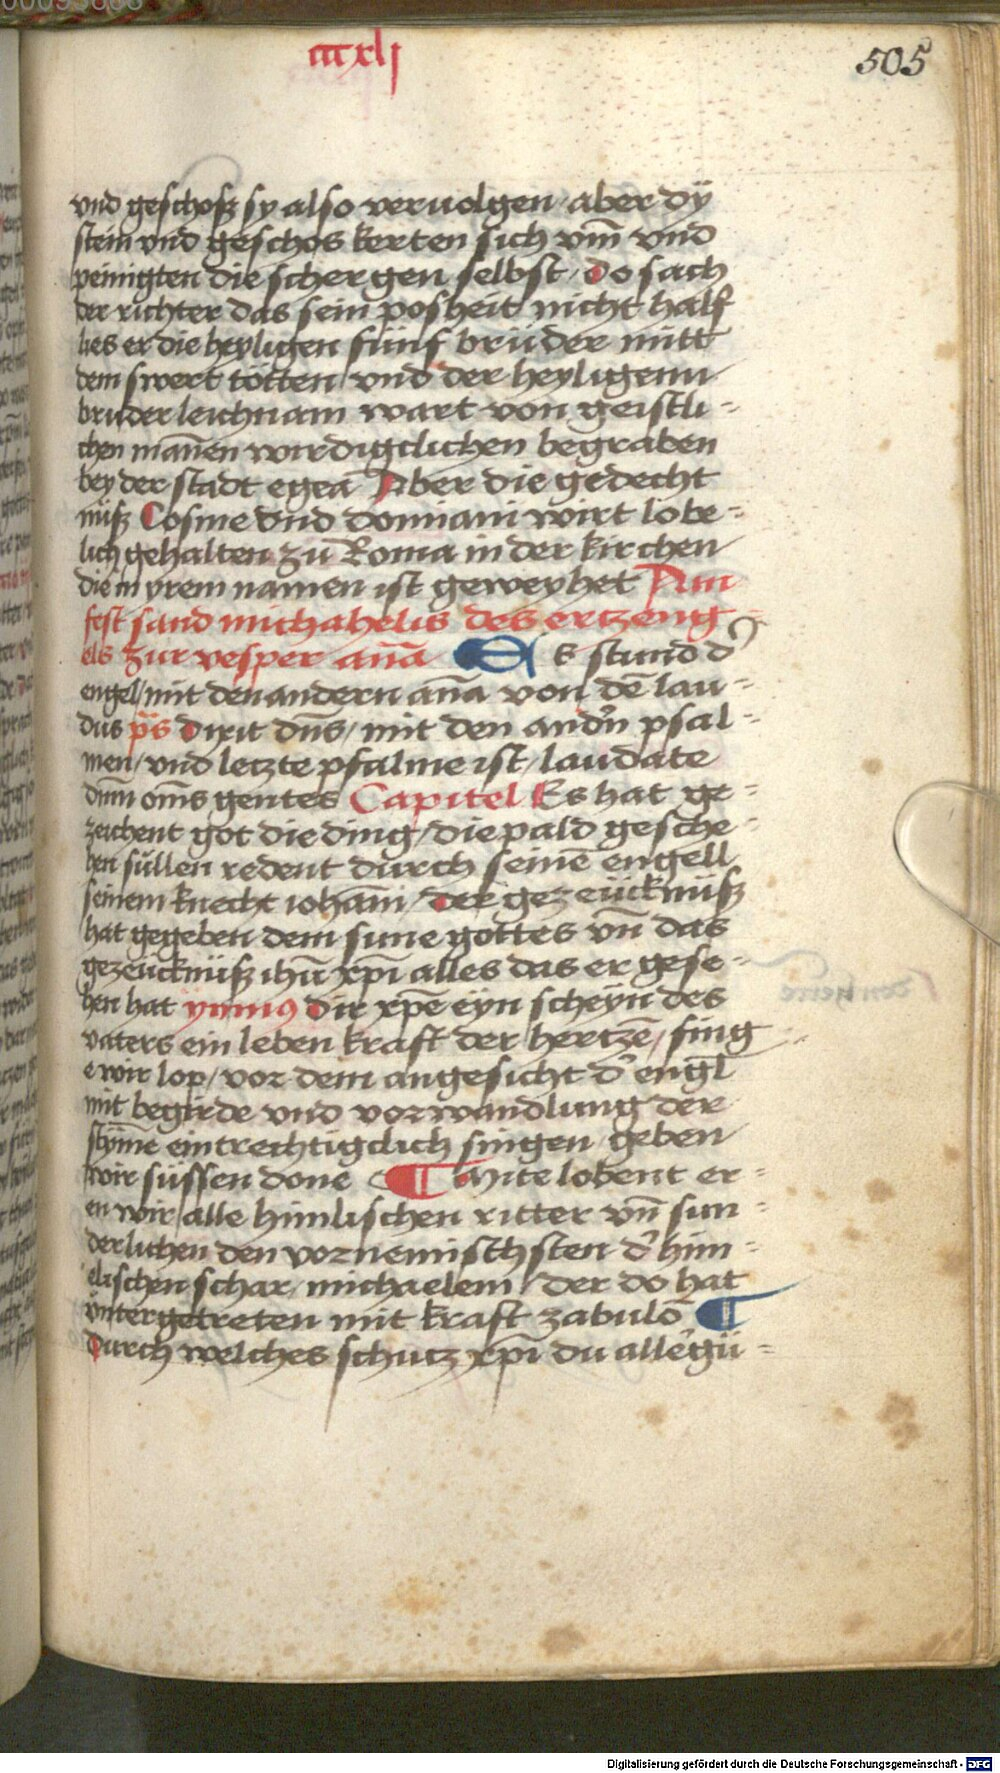 cccxlj
505
vnd geschosz sy also veruolgen / aber dÿ
stein vnd geschos kerten sich vm̄ vnd
peinigten die schergen selbst / do sach
der richter das sein posheit nicht half
lies er die heyligen fünf brüder mitt
dem swert tötten / vnd der heyligenn
bruder leichnam wart von geistli=
chen mañen wirdigclichen begraben
bey der stadt egea Aber die gedecht
nüsz Cosme vnd domiani wirt lobe=
lich gehalten zu Roma in der kirchen
die in yrem namen ist geweyhet Am
fest sand michahelis des ertzeng=
els zur vesper an̄a ES stund d'
engel / mit den andern an̄a von dē lau=
dus ps̄ Dixit dn̄s / mit den and'n psal=
men / vnd letzte psalme ist / laudate
dnm om̄s gentes Capitel Es hat ge=
zeichent got die ding / die pald gesche=
hen süllen redent durch seinē engell
seinem knecht iohan̄i / der gezeücknüsz
hat gegeben dem sune gottes vn̄ das
gezeücknüsz ihū xp̄i alles das er gese=
hen hat ymnus Dir xp̄e eyn scheyn des
vaters ein leben kraft der hertzē / sing
e wir lop / vor dem angesicht d' engl̄
mit begirde vnd vorwandlung der
stym̄e eintrechtigclich singen / geben
wir süssen done ¶ Mite lobent er=
en wir / alle himlischen ritter vn̄ sun=
derlichen den vornemischsten d' him=
elischen schar / michaelem / der do hat
vntergetreten mit kraft zabulō ¶
Durch welches schutz xp̄i du all'gü=
Digitalisierung gefördert durch die Deutsche Forschungsgemeinschaft - DFG